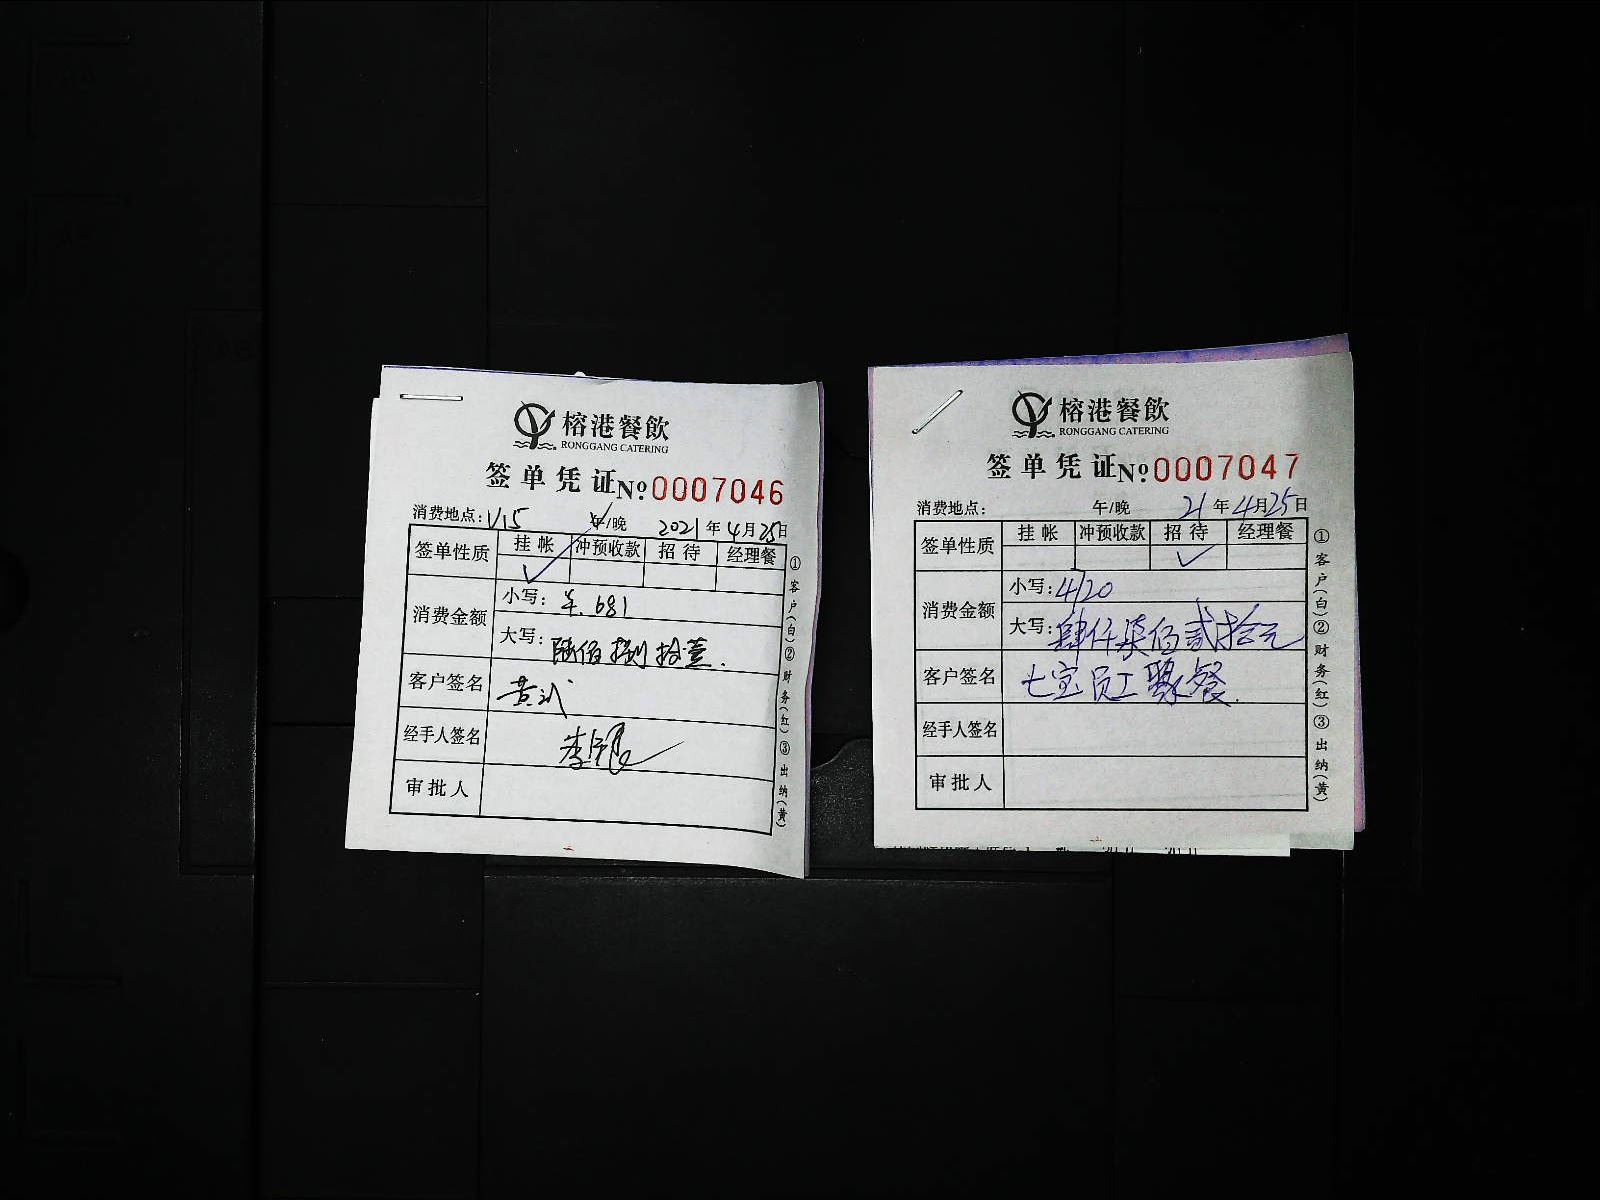 榕港餐飲
RONGGANG CATERING
签单凭证 №:0007046
消费地点: V15 午/晚 2021年4月25日
签单性质 挂帐 冲预收款 招待 经理餐
✓
消费金额 小写: ¥. 681
大写: 陆佰捌拾壹.
客户签名 黄
经手人签名 李
审批人
①客户(白)②财务(红)③出纳(黄)
榕港餐飲
RONGGANG CATERING
签单凭证 №:0007047
消费地点: 午/晚 21年4月25日
签单性质 挂帐 冲预收款 招待 经理餐
✓
消费金额 小写: 4720
大写: 肆仟柒佰贰拾元
客户签名 七宝员工聚餐.
经手人签名
审批人
①客户(白)②财务(红)③出纳(黄)